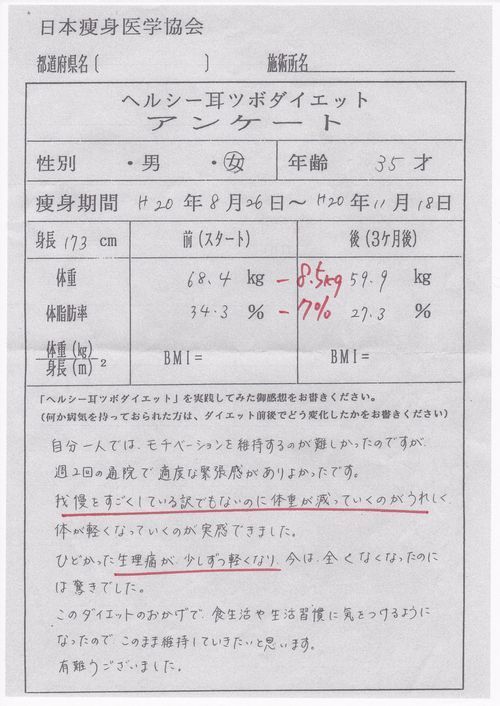 日本痩身医学協会
都道府県名〔 〕 施術所名
ヘルシー耳ツボダイエット
アンケート
性別 ・男 ・女 年齢 35才
痩身期間 H20年8月26日～H20年11月18日
身長 173 cm 前(スタート) 後(3ケ月後)
体重 68.4 kg －8.5kg 59.9 kg
体脂肪率 34.3 % －7% 27.3 %
体重(kg)
身長(m)2 BMI= BMI=
「ヘルシー耳ツボダイエット」を実践してみた御感想をお書きください。
(何か病気を持っておられた方は、ダイエット前後でどう変化したかをお書きください)
自分一人では、モチベーションを維持するのが難しかったのですが、
週2回の通院で適度な緊張感がありよかったです。
我慢をすごくしている訳でもないのに体重が減っていくのがうれしく、
体が軽くなっていくのが実感できました。
ひどかった生理痛が、少しずつ軽くなり、今は、全くなくなったのに
は驚きでした。
このダイエットのおかげで、食生活や生活習慣に気をつけるように
なったので、このまま維持していきたいと思います。
有難うございました。